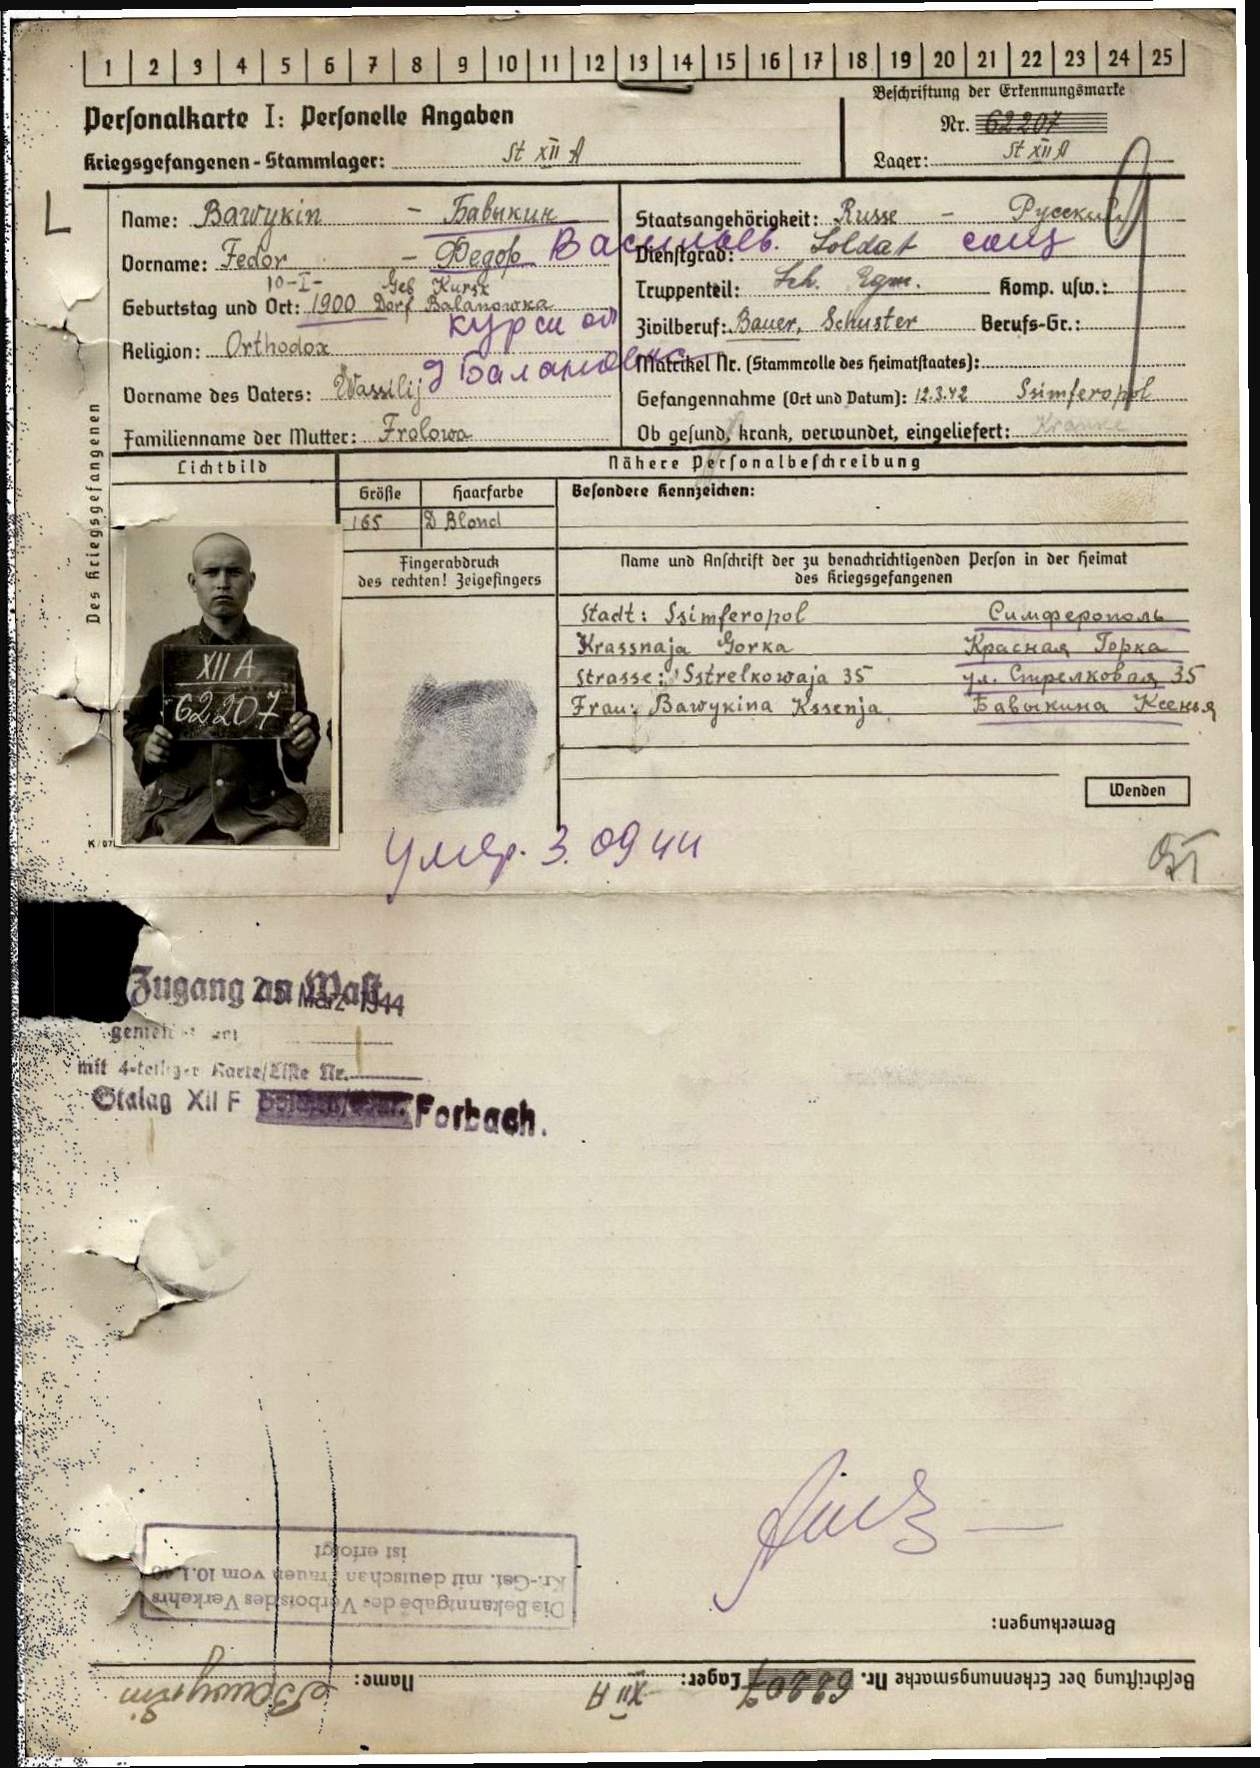 1 2 3 4 5 6 7 8 9 10 11 12 13 14 15 16 17 18 19 20 21 22 23 24 25
Personalkarte I: Personelle Angaben
Kriegsgefangenen-Stammlager: St XII A
Beschriftung der Erkennungsmarke
Nr. 62207
Lager: St XII A
Des Kriegsgefangenen
Name: Bawykin – Бавыкин
Vorname: Fedor – Федор Васильев.
10-I- Geb Kursk
Geburtstag und Ort: 1900 Dorf Balanowka
Курск обл
Religion: Orthodox
д Балановка
Vorname des Vaters: Wassilij
Familienname der Mutter: Frolowa
Staatsangehörigkeit: Russe – Русский
Dienstgrad: Soldat солд
Truppenteil: Sch. Rgm. Komp. usw.:
Zivilberuf: Bauer, Schuster Berufs-Gr.:
Matrikel Nr. (Stammrolle des Heimatstaates):
Gefangennahme (Ort und Datum): 12.3.42 Ssimferopol
Ob gesund, krank, verwundet, eingeliefert:
Lichtbild
Nähere Personalbeschreibung
Größe Haarfarbe
165 D Blond
Besondere Kennzeichen:
Fingerabdruck
des rechten! Zeigefingers
Name und Anschrift der zu benachrichtigenden Person in der Heimat
des Kriegsgefangenen
Stadt: Ssimferopol Симферополь
Krassnaja Gorka Красная Горка
Strasse: Sstrelkowaja 35 ул. Стрелковая 35
Frau: Bawykina Kssenja Бавыкина Ксенья
XII A
62207
Wenden
умер. 3.09 44
Zugang an Wast
März 1944
mit 4-teiliger Karte/Liste Nr.
Stalag XII F Forbach.
Die Bekanntgabe des Verbots des Verkehrs
Kr.-Gef. mit deutschen Frauen vom 10.1.40
ist erfolgt
Bemerkungen:
Beschriftung der Erkennungsmarke Nr. 62207 Lager: XII A Name: Bawykin